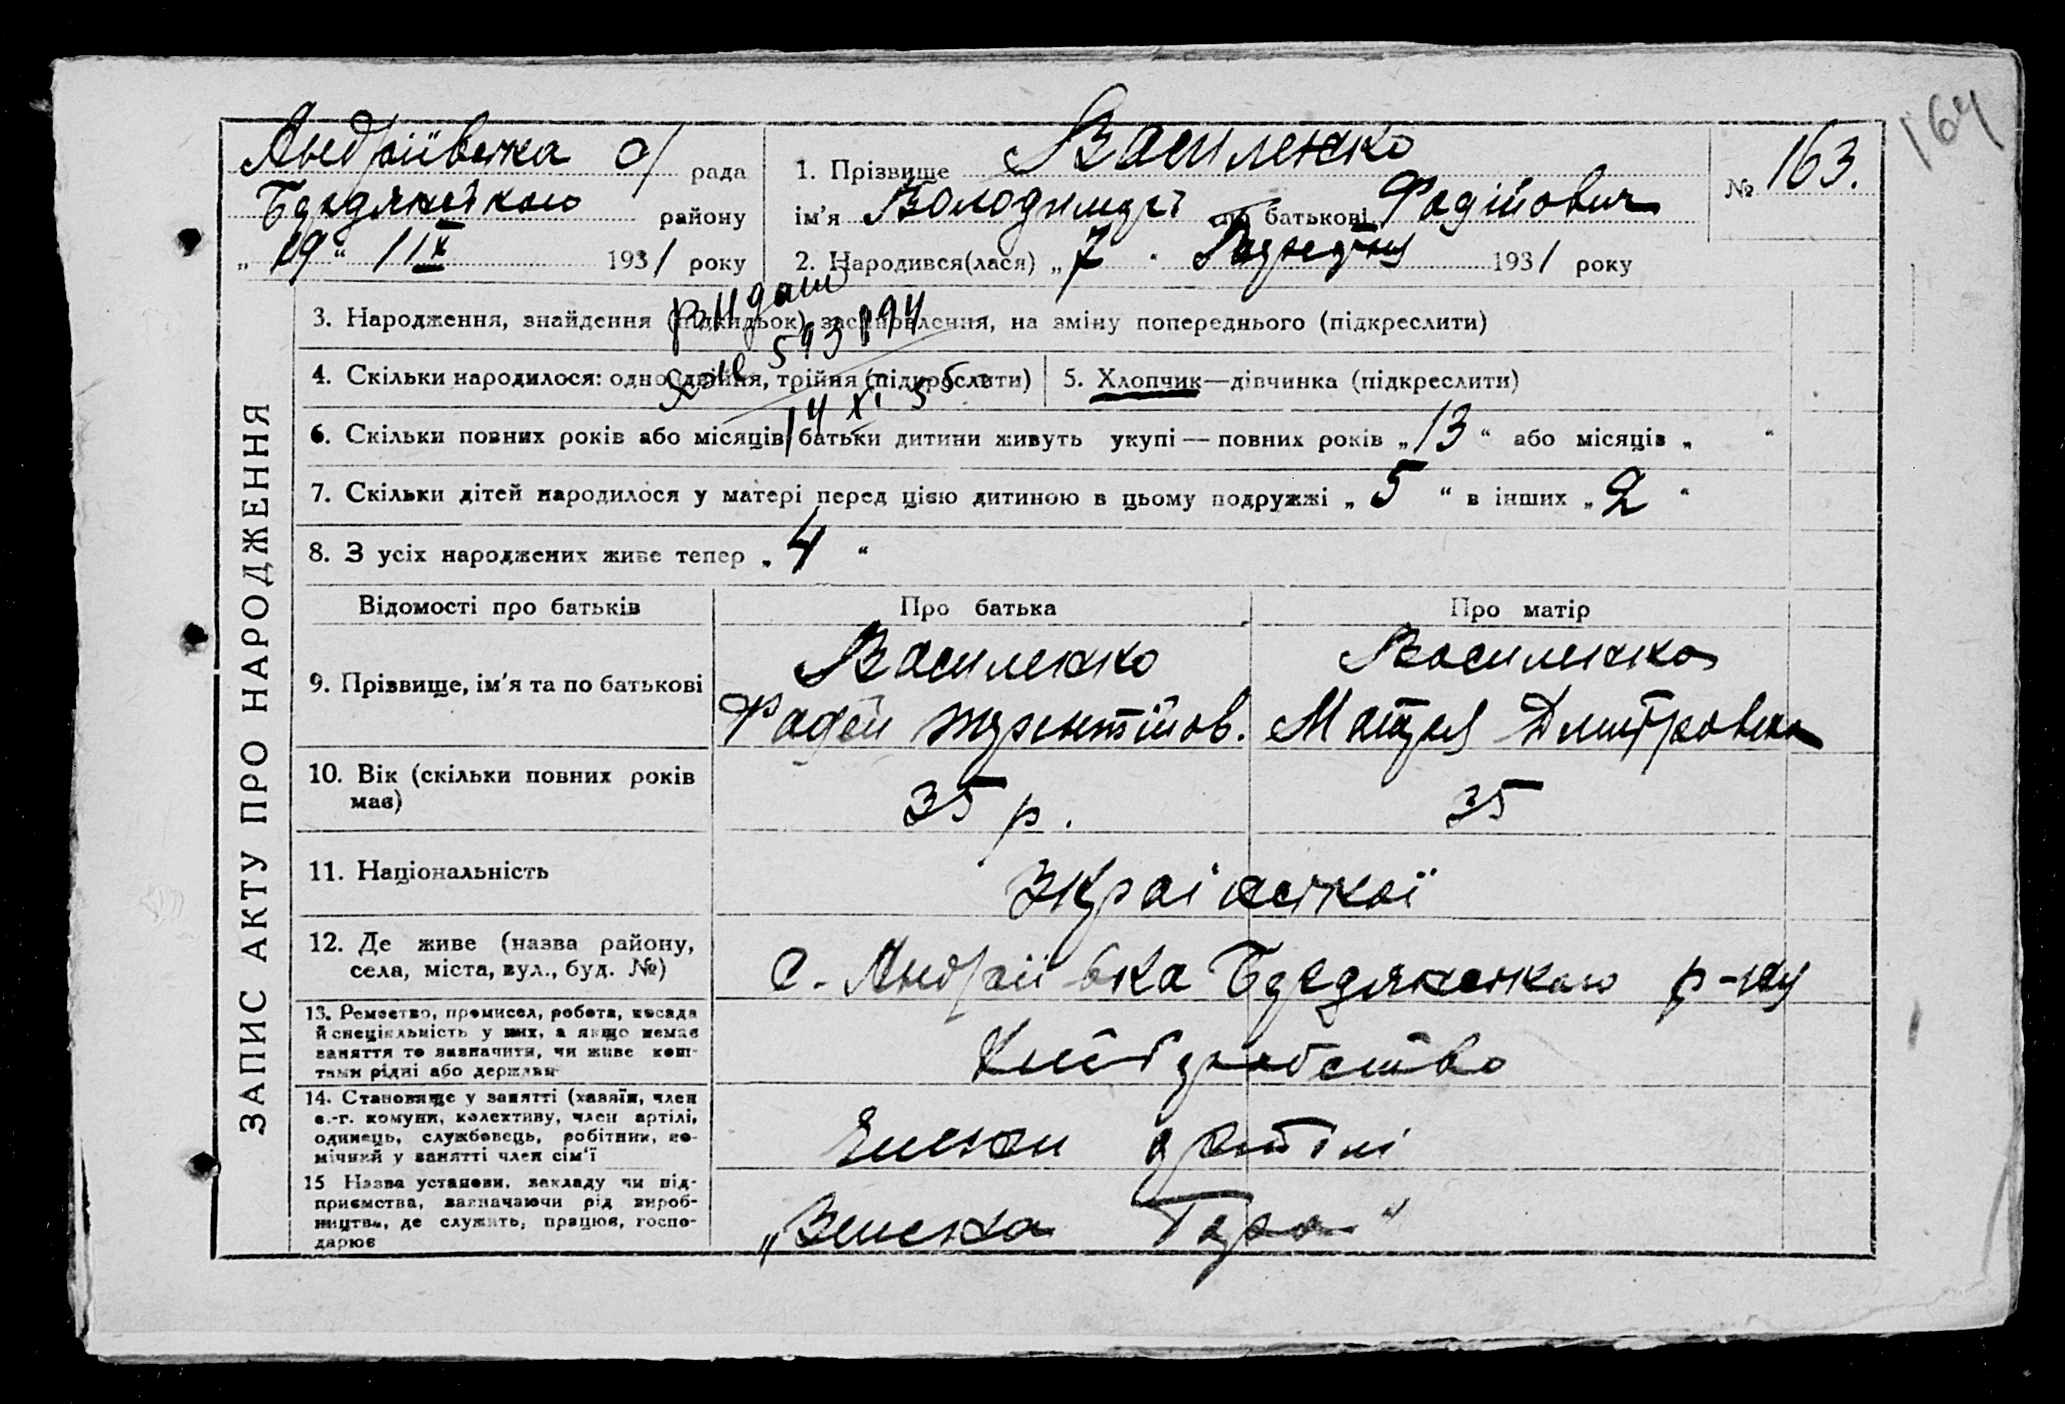 164
Андріївська с/ рада
Бердянського району
„19“ IX 1931 року
1. Прізвище Василенко
ім'я Володимир по батькові Фадійович
№ 163.
2. Народився(лася) „7 . 1931 року
ЗАПИС АКТУ ПРО НАРОДЖЕННЯ
3. Народження, знайдення (підкидьок), засиновлення, на зміну попереднього (підкреслити)
Видано
593194
4. Скільки народилося: одно, двійня, трійня (підкреслити)
14 XI 55
5. Хлопчик—дівчинка (підкреслити)
6. Скільки повних років або місяців батьки дитини живуть укупі — повних років „13“ або місяців „ “
7. Скільки дітей народилося у матері перед цією дитиною в цьому подружжі „5“ в інших „2“
8. З усіх народжених живе тепер „4“
Відомості про батьків Про батька Про матір
9. Прізвище, ім'я та по батькові
Василенко Василенко
Фадей Мотря Дмитровна
10. Вік (скільки повних років має)
35 р. 35
11. Національність
Української
12. Де живе (назва району, села, міста, вул., буд. №)
с. Андріївка Бердянського р-ну
13. Ремество, промисел, робота, посада й спеціяльність у них, а якщо немає заняття то зазначити, чи живе коштами рідні або держави
Хліборобство
14. Становище у занятті (хазяїн, член с.-г. комуни, колективу, член артілі, одинець, службовець, робітник, помічний у занятті член сім'ї
Члени артілі
15 Назва установи, закладу чи підприємства, зазначаючи рід виробництва, де служить, працює, господарює